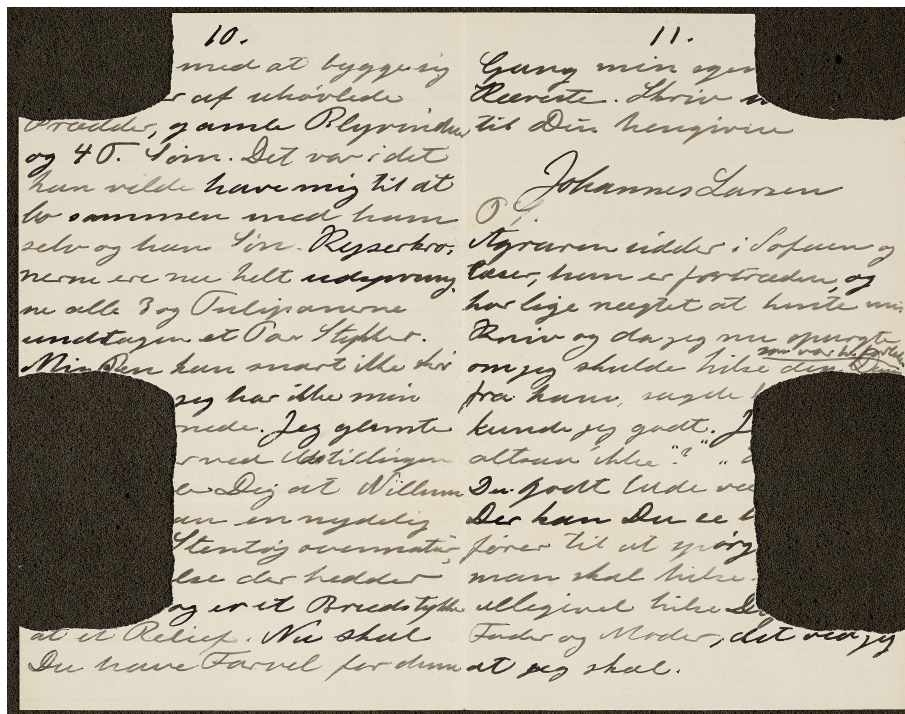 10.
med at bygge sig
af uhøvlede
Brædder, gamle Blyvinduer
og 4 T. Søm. Det var i det
han vilde have mig til at
bo sammen med ham
selv og hans Søn. Kejserkro-
nerne ere nu helt udsprung-
ne alle 3 og Tulipanerne
undtagen et Par Stykker.
Min Pen kan snart ikke
jeg har ikke min
nede. Jeg glemte
ved Udstillingen
Dig at Willum
en nydelig
Stentøj
lse der hedder
og er et Brudstykke
at et Relief. Nu skal
Du have Farvel for denne
11.
Gang min egen
Kæreste. Skriv
til Din hengivne
Johannes Larsen
P S.
Agraren sidder i Sofaen og
læser, han er fortræden, og
har lige nægtet at hente min
Kniv og da jeg nu spurgte
om jeg skulde hilse den
fra ham, sagde
kunde jeg godt.
altsaa ikke"? "
Du godt lade
Der kan Du se
fører til at spørg
man skal hilse.
alligevel hilse
Fader og Moder, det ved jeg
at jeg skal.